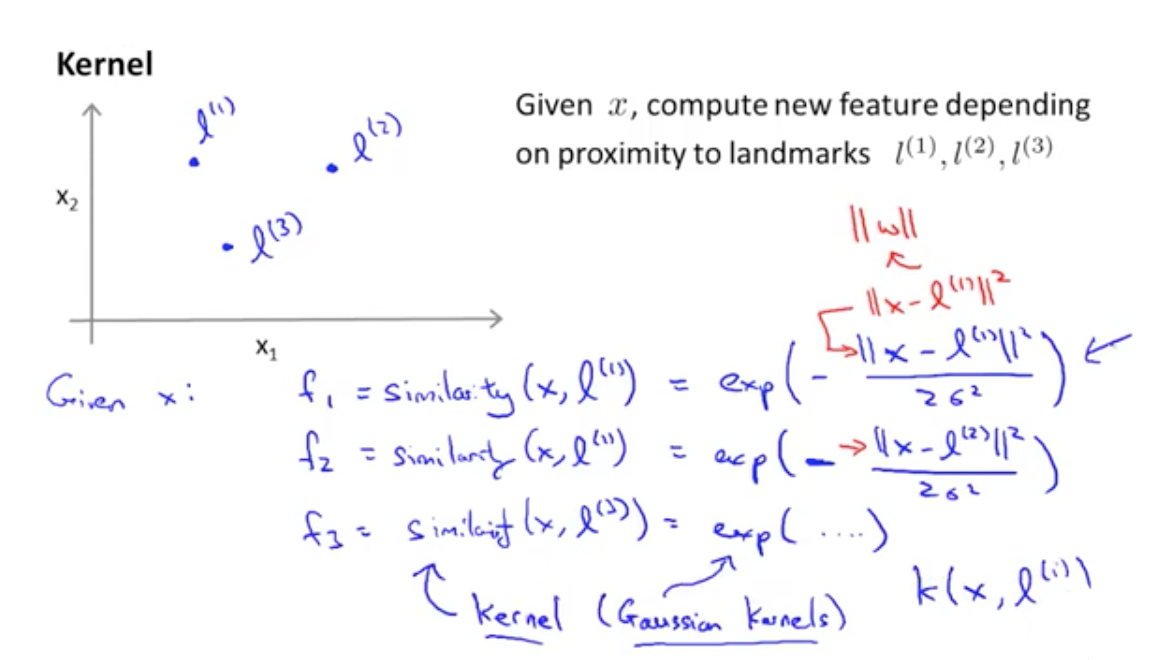 Kernel
l⁽¹⁾
l⁽²⁾
l⁽³⁾
x₂
x₁
Given x, compute new feature depending
on proximity to landmarks l⁽¹⁾, l⁽²⁾, l⁽³⁾
||w||
||x - l⁽¹⁾||²
Given x: f₁ = similarity (x, l⁽¹⁾) = exp( - ||x - l⁽¹⁾||² / 2σ² )
f₂ = similarity (x, l⁽¹⁾) = exp( - ||x - l⁽²⁾||² / 2σ² )
f₃ = similarity (x, l⁽³⁾) = exp( .... )
kernel (Gaussian kernels) k(x, l⁽ⁱ⁾)